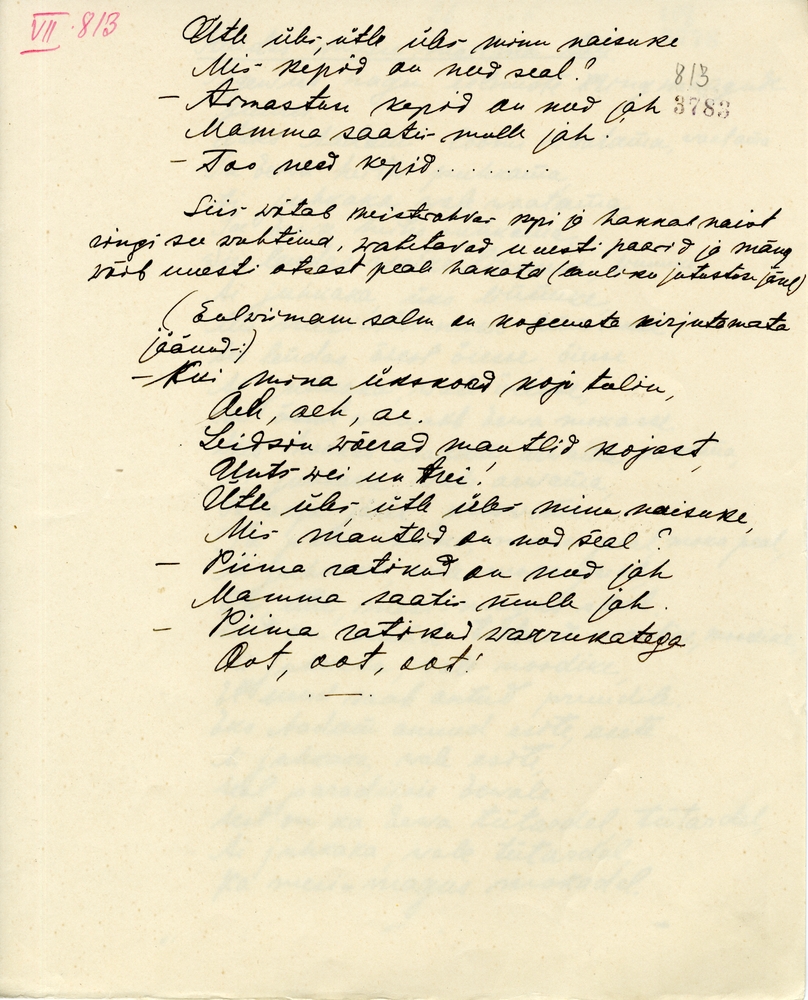 VII 813
Ütle üles, ütle üles minu naisuke
Mis kepid on need seal?
813
– Armastuse kepid on nad jah
3783
Mamma saatis mulle jah.
– Too need kepid.........
Siis wõtab meistrahvas kepi ja hakkab naist
ringi see, uuesti paarid ja mäng
wõib uuesti otsast peale hakata (lauliku jutustuse järel)
(Eelwiimane salm on kogemata kirjutamata
jäänud:)
– Kui mina ükskord koju tulin,
Aeh, aeh, ae.
Leidsin wõerad mantlid kojast,
Unts wei un trei!
Ütle üles, ütle üles minu naisuke,
Mis mantlid on nad seal?
– Piima ratikud on need jah
Mamma saatis mulle jah.
– Piima ratikud warrukatega
Oot, oot, oot!